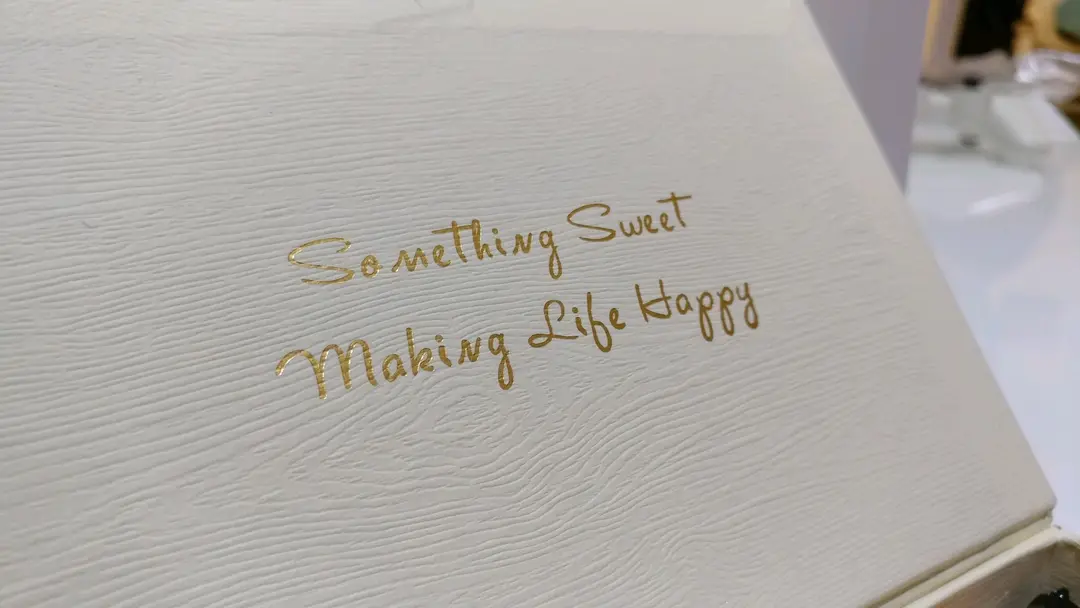 Something Sweet
Making Life Happy